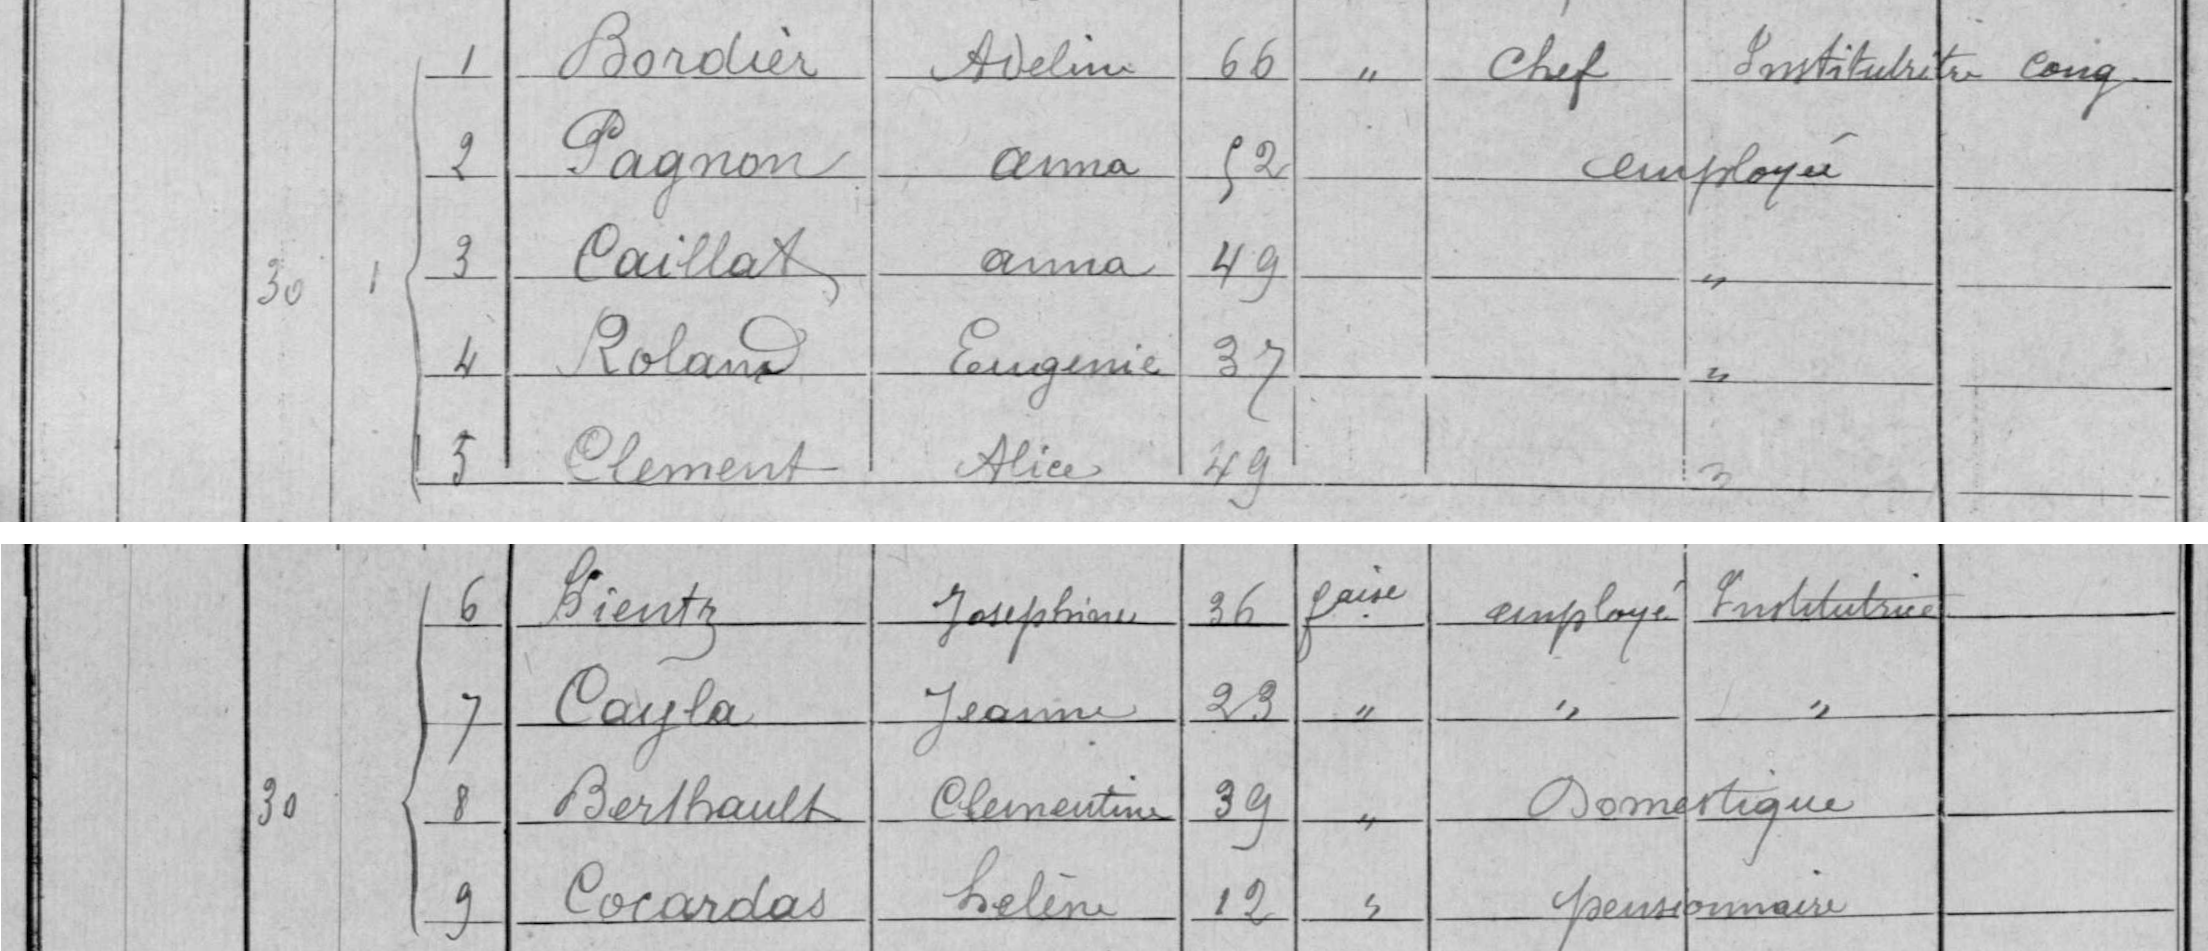 1 Bordier Adeline 66 " Chef Institutritre cong.
2 Pagnon anna 52 employée
30 1 3 Caillat anna 49 "
4 Roland Eugenie 37 "
5 Clement Alice 49 "
6 Sientz Josephine 36 faise employé Institutrice
7 Cayla Jeanne 23 " " "
30 8 Berthault Clementine 39 " Domestique
9 Cocardas helène 12 " pensionnaire